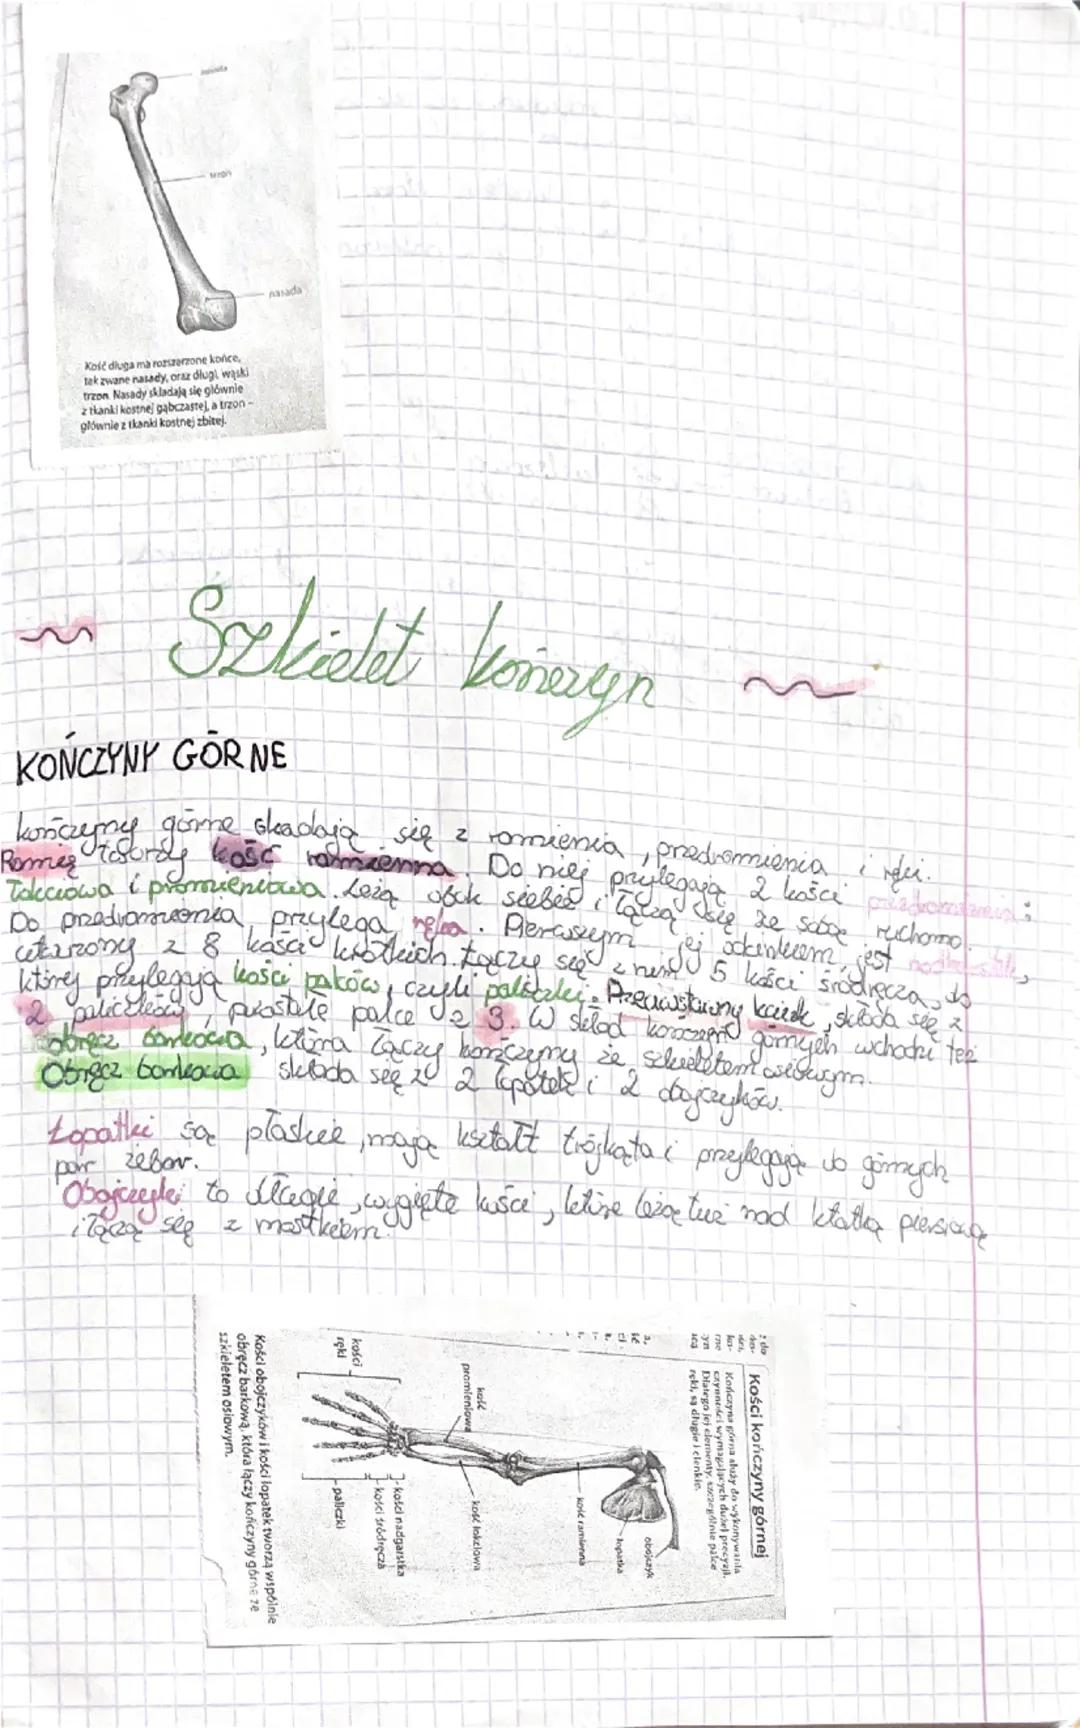 nasada
trzon
nasada
Kość długa ma rozszerzone końce,
tak zwane nasady, oraz długi, wąski
trzon. Nasady składają się głównie
z tkanki kostnej gąbczastej, a trzon –
głównie z tkanki kostnej zbitej.
Szkielet kończyn
KOŃCZYNY GÓRNE
kończyny górne składają się z ramienia, przedramienia i ręki.
Ramię tworzy kość ramienna. Do niej przylegają 2 kości przedramienia:
łokciowa i promieniowa. Leżą obok siebie i łączą się ze sobą ruchomo.
Do przedramienia przylega ręka. Pierwszym jej odcinkiem jest
utworzony z 8 kości krótkich. Łączy się z nim 5 kości śródręcza, do
której przylegają kości palców, czyli paliczki. Przeciwstawny kciuk, składa się z
2 paliczków, pozostałe palce z 3. W skład kończyn górnych wchodzi też
obręcz barkowa, która łączy kończyny ze szkieletem osiowym.
Obręcz barkowa składa się z 2 łopatek i 2 obojczyków.
Łopatki są płaskie, mają kształt trójkąta i przylegają do górnych
par żeber.
Obojczyki to długie, wygięte kości, które leżą tuż nad klatką piersiową
i łączą się z mostkiem.
Kości kończyny górnej
Kończyna górna służy do wykonywania
czynności wymagających dużej precyzji.
Dlatego jej elementy, szczególnie palce
ręki, są długie i cienkie.
obojczyk
łopatka
kość ramienna
kość łokciowa
kość
promieniowa
kości
ręki
kości nadgarstka
kości śródręcza
paliczki
Kości obojczyków i kości łopatek tworzą wspólnie
obręcz barkową, która łączy kończyny górne ze
szkieletem osiowym.